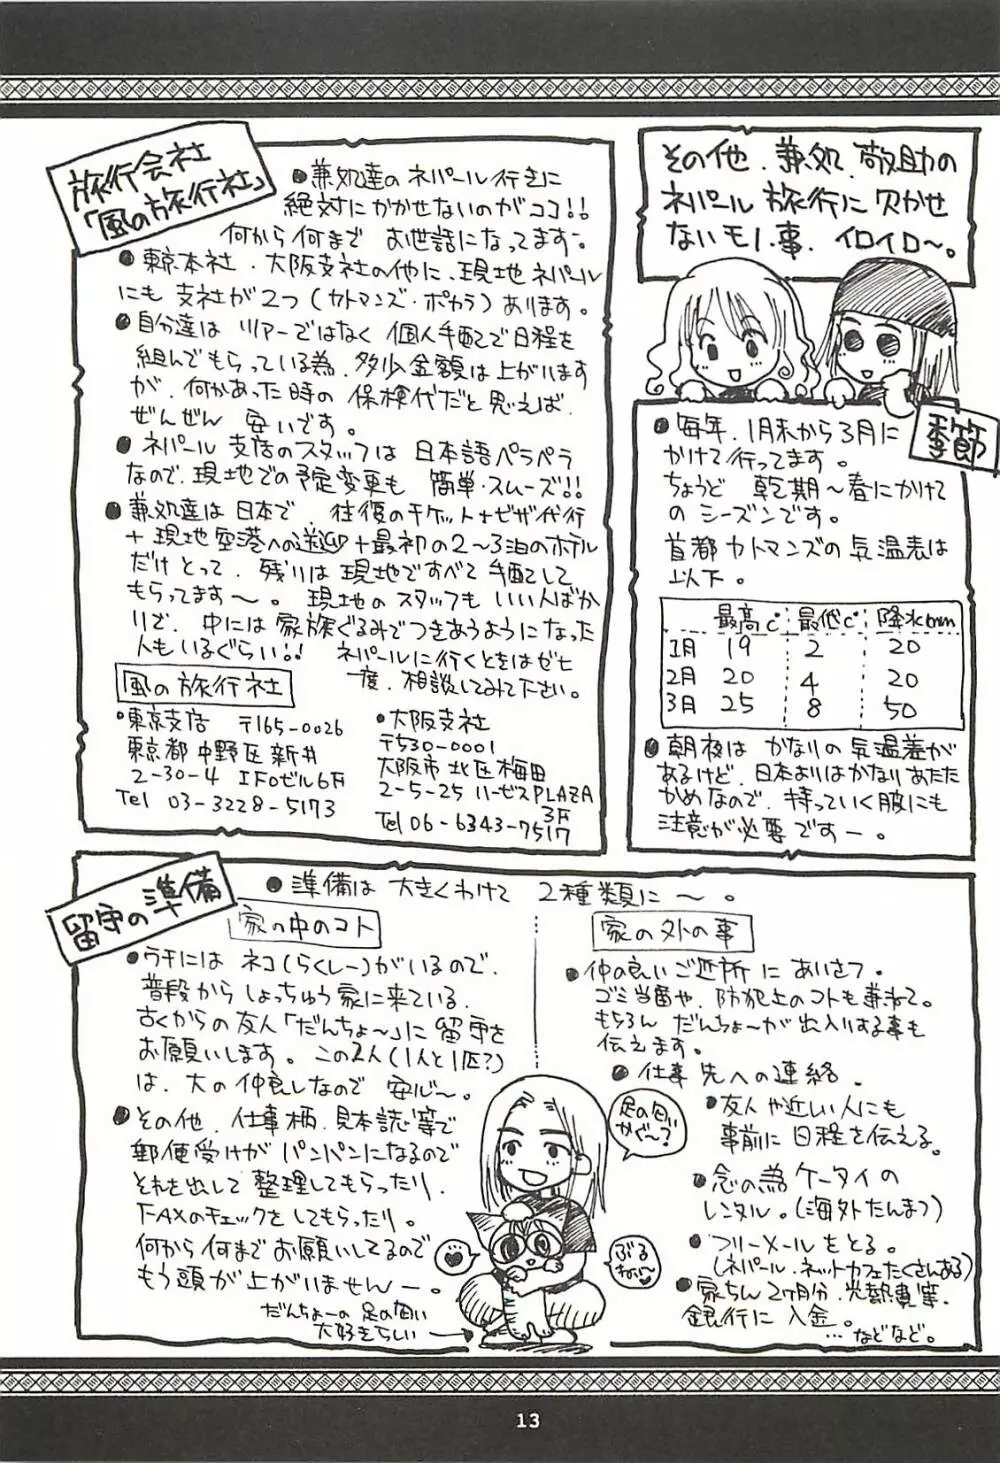 その他、兼処、敬助の
ネパール旅行に欠かせ
ないモノ、事、イロイロ〜。
旅行会社
「風の旅行社」
●兼処達のネパール行きに
絶対にかかせないのがココ!!
何から何まで お世話になってます。
●東京本社・大阪支社の他に、現地ネパール
にも支社が2つ(カトマンズ・ポカラ)あります。
●自分達は ツアーではなく 個人手配で日程を
組んでもらっている為、多少金額は上がります
が、何かあった時の 保険代だと思えば、
ぜんぜん 安いです。
●ネパール支店のスタッフは 日本語ペラペラ
なので、現地での予定変更も 簡単・スムーズ!!
●兼処達は日本で、往復のチケット+ビザ代行
+現地空港への送迎+最初の2〜3泊のホテル
だけとって、残りは現地ですべて手配して
もらってます〜。現地のスタッフも いい人ばか
りで、中には家族ぐるみでつきあうようになった
人もいるぐらい!! ネパールに行くときはゼヒ
一度、相談してみて下さい。
風の旅行社
・東京支店 〒165-0026
東京都中野区新井
2-30-4 IFOビル6F
Tel 03-3228-5173
・大阪支社
〒530-0001
大阪市北区梅田
2-5-25 ハービスPLAZA
3F
Tel 06-6343-7517
季節
●毎年、1月末から3月に
かけて行ってます。
ちょうど 乾期〜春にかけて
の シーズンです。
首都カトマンズの気温表は
以下。
最高℃ 最低℃ 降水mm
1月 19 2 20
2月 20 4 20
3月 25 8 50
●朝夜は かなりの気温差が
あるけど、日本よりはかなりあたた
かめなので、持っていく服にも
注意が必要ですー。
留守の準備
●準備は 大きくわけて 2種類に〜。
家の中のコト
●ウチには ネコ(らくしー)がいるので、
普段からしょっちゅう家に来ている、
古くからの友人「だんちょ〜」に留守を
お願いします。この2人(1人と1匹?)
は、大の仲良しなので 安心〜。
●その他、仕事柄、見本誌等で
郵便受けが パンパンになるので
それを出して 整理してもらったり、
FAXのチェックをしてもらったり。
何から何までお願いしてるので
もう頭が上がりませんー。
だんちょーの足の匂い
大好きらしい
足の匂い
かぐ〜?
ぶる
ねぃ〜♡
家の外の事
●仲の良いご近所にあいさつ。
ゴミ当番や、防犯上のコトも兼ねて。
もちろん だんちょ〜が出入りする事も
伝えます。
●仕事先への連絡。
●友人や近しい人にも
事前に日程を伝える。
●念の為ケータイの
レンタル。(海外たんまつ)
●フリーメールをとる。
(ネパール、ネットカフェたくさんある)
●家ちん2ヶ月分、光熱費等、
銀行に入金。
…などなど。
13